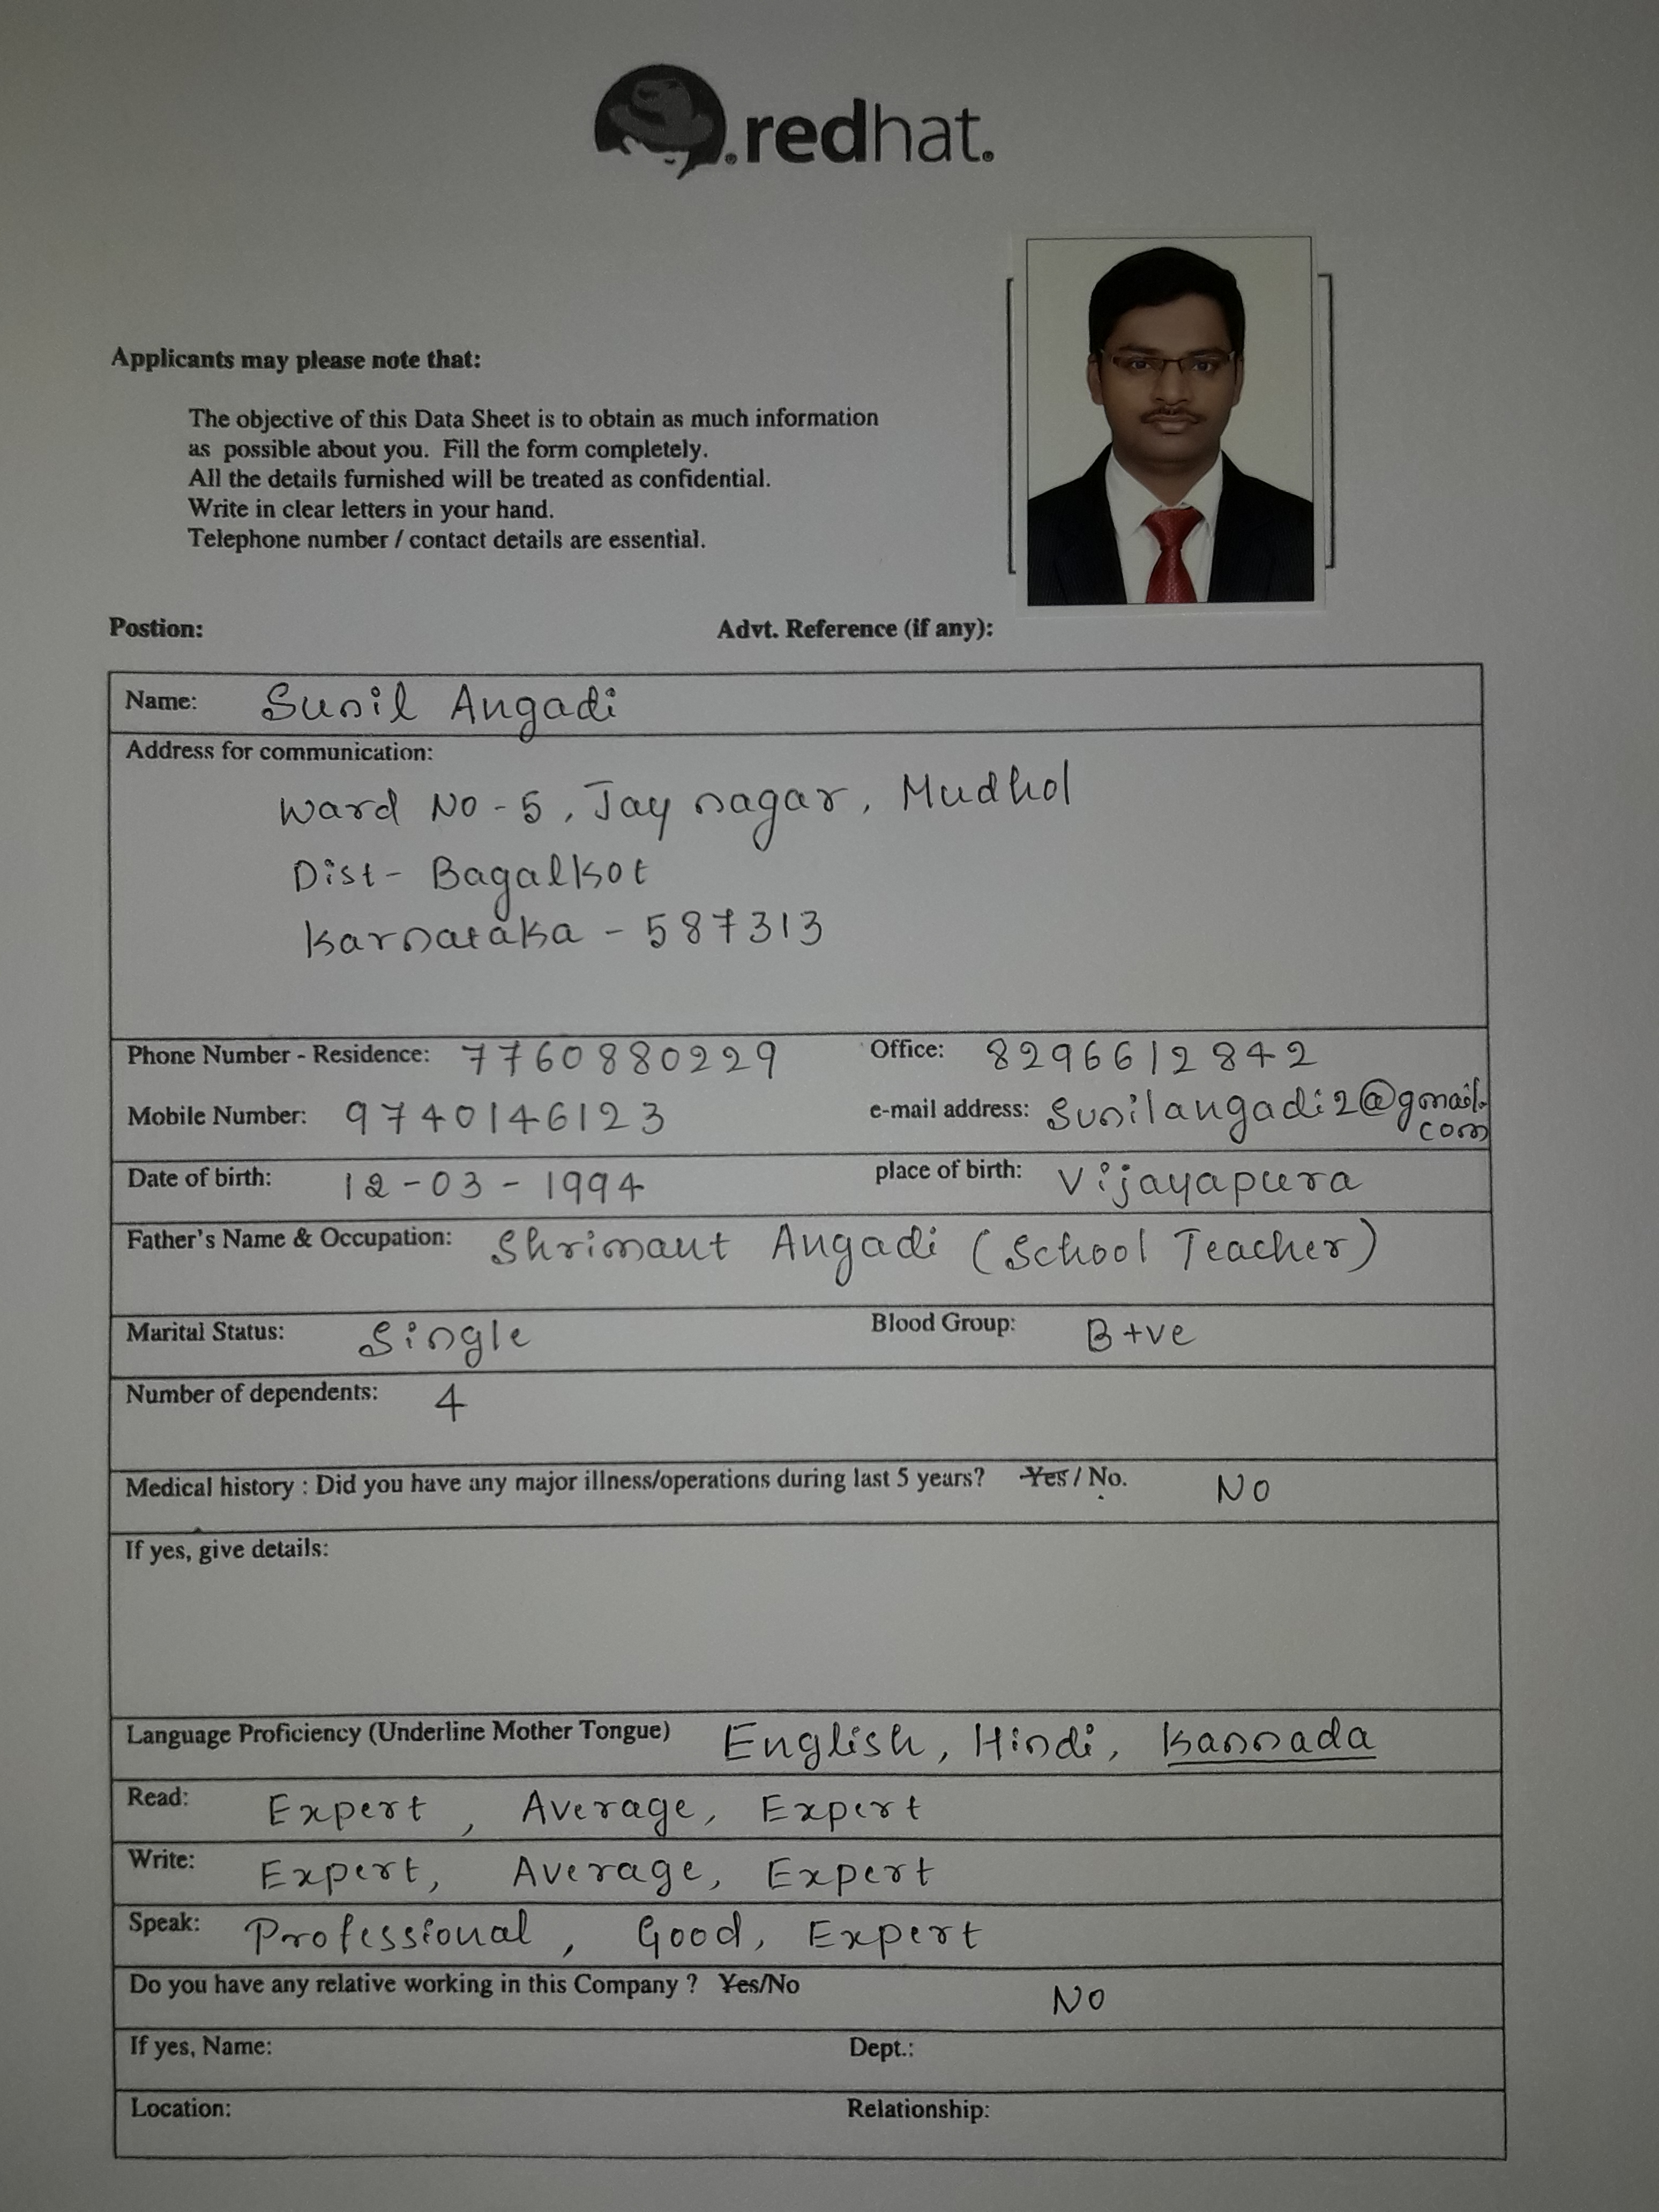 redhat.
Applicants may please note that:
The objective of this Data Sheet is to obtain as much information
as possible about you. Fill the form completely.
All the details furnished will be treated as confidential.
Write in clear letters in your hand.
Telephone number / contact details are essential.
Postion: Advt. Reference (if any):
Name: Sunil Angadi
Address for communication:
Ward No - 5, Jay nagar, Mudhol
Dist - Bagalkot
Karnataka - 587313
Phone Number - Residence: 7760880229 Office: 8296612842
Mobile Number: 9740146123 e-mail address: Sunilangadi2@gmail.
com
Date of birth: 12-03-1994 place of birth: Vijayapura
Father's Name & Occupation: Shrimant Angadi (School Teacher)
Marital Status: Single Blood Group: B +ve
Number of dependents: 4
Medical history : Did you have any major illness/operations during last 5 years? Yes / No. NO
If yes, give details:
Language Proficiency (Underline Mother Tongue) English, Hindi, Kannada
Read: Expert, Average, Expert
Write: Expert, Average, Expert
Speak: Professional, Good, Expert
Do you have any relative working in this Company ? Yes/No NO
If yes, Name: Dept.:
Location: Relationship: